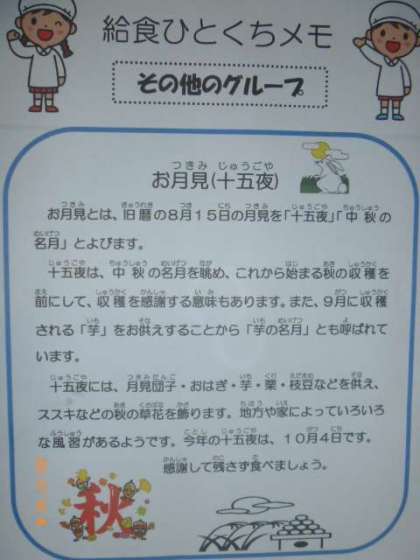 給食ひとくちメモ
その他のグループ
お月見(十五夜)
お月見とは、旧暦の8月15日の月見を「十五夜」「中秋の
名月」とよびます。
十五夜は、中秋の名月を眺め、これから始まる秋の収穫を
前にして、収穫を感謝する意味もあります。また、9月に収穫
される「芋」をお供えすることから「芋の名月」とも呼ばれて
います。
十五夜には、月見団子・おはぎ・芋・栗・枝豆などを供え、
ススキなどの秋の草花を飾ります。地方や家によっていろいろ
な風習があるようです。今年の十五夜は、10月4日です。
感謝して残さず食べましょう。
秋